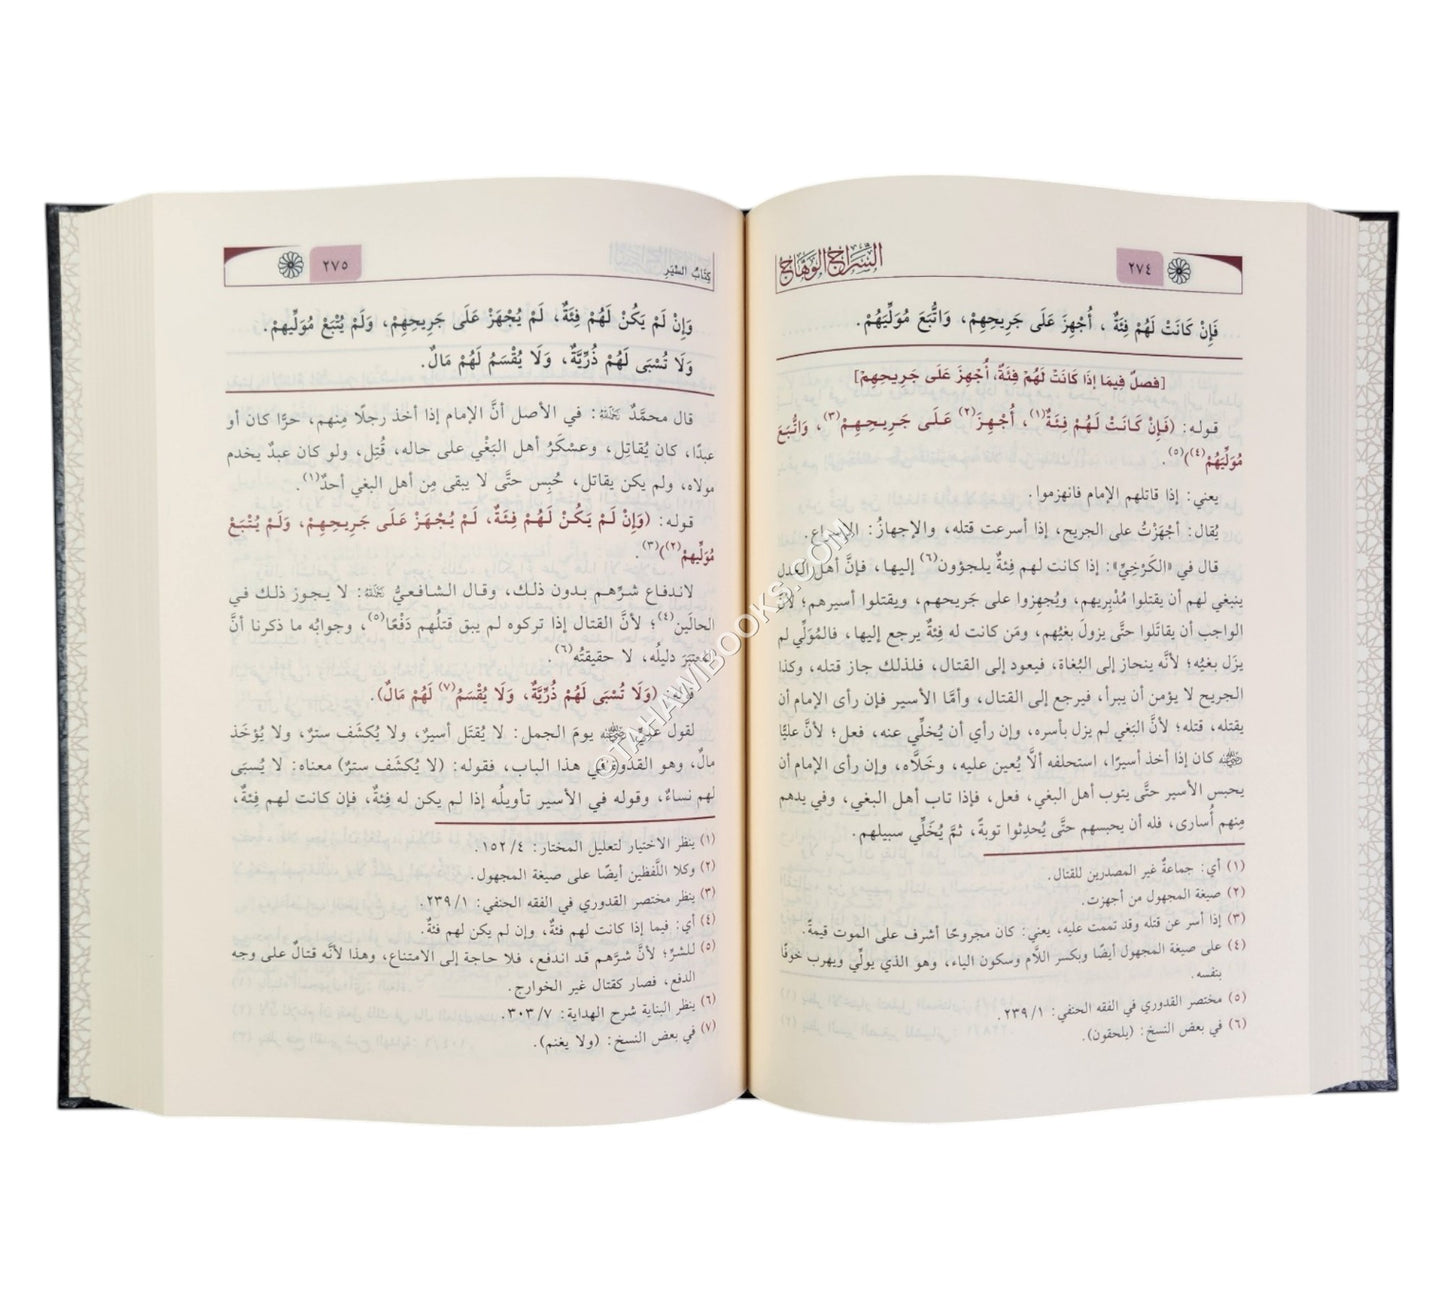 ٢٧٤
السراج الوهاج
فَإِنْ كَانَتْ لَهُمْ فِئَةٌ ، أُجْهِزَ عَلَى جَرِيحِهِمْ، وَاتُّبِعَ مُوَلِّيَهُمْ.
[فصلٌ فِيمَا إذَا كَانَتْ لَهُمْ فِئَةٌ، أُجْهِزَ عَلَى جَرِيحِهِمْ]
قوله: (فَإِنْ كَانَتْ لَهُمْ فِئَةٌ(١)، أُجْهِزَ(٢) عَلَى جَرِيحِهِمْ(٣)، وَاتُّبِعَ
مُوَلِّيَهُمْ(٤))(٥).
يعني: إذا قاتلهم الإمام فانهزموا.
يُقال: أجْهَزْتُ على الجريح، إذا أسرعت قتله، والإجهازُ: الإسراع.
قال في «الكَرْخِيِّ»: إذا كانت لهم فِئةٌ يلجؤون(٦) إليها، فإنَّ أهل العدل
ينبغي لهم أن يقتلوا مُدْبِريهم، ويُجهزوا على جَريحهم، ويقتلوا أسيرهم؛ لأنَّ
الواجب أن يقاتَلوا حتَّى يزولَ بغيُهم، ومَن كانت له فِئةٌ يرجع إليها، فالمُوَلِّي لم
يزَل بغيُه؛ لأنَّه ينحاز إلى البُغاة، فيعود إلى القتال، فلذلك جاز قتله، وكذا
الجريح لا يؤمن أن يبرأ، فيرجع إلى القتال، وأمَّا الأسير فإن رأى الإمام أن
يقتله، قتله؛ لأنَّ البَغي لم يزل بأسره، وإن رأي أن يُخلِّي عنه، فعل؛ لأنَّ عليًّا
رضي الله عنه كان إذا أخذ أسيرًا، استحلفه ألاَّ يُعين عليه، وخَلَّاه، وإن رأى الإمام أن
يحبس الأسير حتَّى يتوب أهل البغي، فعل، فإذا تاب أهل البغي، وفي يدهم
مِنهم أُسارى، فله أن يحبسهم حتَّى يُحدِثوا توبةً، ثمَّ يُخَلِّي سبيلهم.
(١) أي: جماعةٌ غير المصدرين للقتال.
(٢) صيغة المجهول من أجهزت.
(٣) إذا أسر عن قتله وقد تممت عليه، يعني: كان مجروحًا أشرف على الموت قيمةً.
(٤) على صيغة المجهول أيضًا وبكسر اللَّام وسكون الياء، وهو الذي يولِّي ويهرب خوفًا
بنفسه.
(٥) مختصر القدوري في الفقه الحنفي: ٢٣٩/١.
(٦) في بعض النسخ: (يلحقون).
كِتَابُ السِّيَرِ
٢٧٥
وَإِنْ لَمْ يَكُنْ لَهُمْ فِئَةٌ، لَمْ يُجْهَزْ عَلَى جَرِيحِهِمْ، وَلَمْ يُتْبَعْ مُوَلِّيهِمْ.
وَلَا تُسْبَى لَهُمْ ذُرِّيَّةٌ، وَلَا يُقْسَمُ لَهُمْ مَالٌ.
قال محمَّدٌ رحمه الله: في الأصل أنَّ الإمام إذا أخذ رجلًا مِنهم، حرًّا كان أو
عبدًا، كان يُقاتِل، وعسْكَرُ أهل البَغْي على حاله، قُتِل، ولو كان عبدٌ يخدم
مولاه، ولم يكن يقاتل، حُبِس حتَّى لا يبقى مِن أهل البغي أحدٌ(١).
قوله: (وَإِنْ لَمْ يَكُنْ لَهُمْ فِئَةٌ، لَمْ يُجْهَزْ عَلَى جَرِيحِهِمْ، وَلَمْ يُتْبَعْ
مُوَلِّيهِمْ(٢))(٣).
لاندفاع شرِّهم بدون ذلك، وقال الشافعيُّ رحمه الله: لا يجوز ذلك في
الحالَين(٤)؛ لأنَّ القتال إذا تركوه لم يبق قتلُهم دَفْعًا(٥)، وجوابُه ما ذكرنا أنَّ
المعتبَرَ دليلُه، لا حقيقتُه(٦).
قوله: (وَلَا تُسْبَى لَهُمْ ذُرِّيَّةٌ، وَلَا يُقْسَمُ(٧) لَهُمْ مَالٌ).
لقول عليٍّ رضي الله عنه يومَ الجمل: لا يُقتَل أسيرٌ، ولا يُكشَف سترٌ، ولا يُؤخَذ
مالٌ، وهو القدوة في هذا الباب، فقوله: (لا يُكشَف سترٌ) معناه: لا يُسبَى
لهم نساءٌ، وقوله في الأسير تأويلُه إذا لم يكن له فِئةٌ، فإن كانت لهم فِئةٌ،
(١) ينظر الاختيار لتعليل المختار: ١٥٢/٤.
(٢) وكلا اللَّفظين أيضًا على صيغة المجهول.
(٣) ينظر مختصر القدوري في الفقه الحنفي: ٢٣٩/١.
(٤) أي: فيما إذا كانت لهم فئةٌ، وإن لم يكن لهم فئةٌ.
(٥) للشرِّ؛ لأنَّ شرَّهم قد اندفع، فلا حاجة إلى الامتناع، وهذا لأنَّه قتالٌ على وجه
الدفع، فصار كقتال غير الخوارج.
(٦) ينظر البناية شرح الهداية: ٣٠٣/٧.
(٧) في بعض النسخ: (ولا يغنم).
©TAHAWIBOOKS.COM